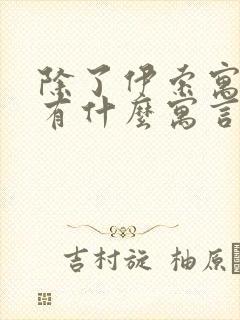 除了伊索寓
有什麼寓言
吉村旋 柚原